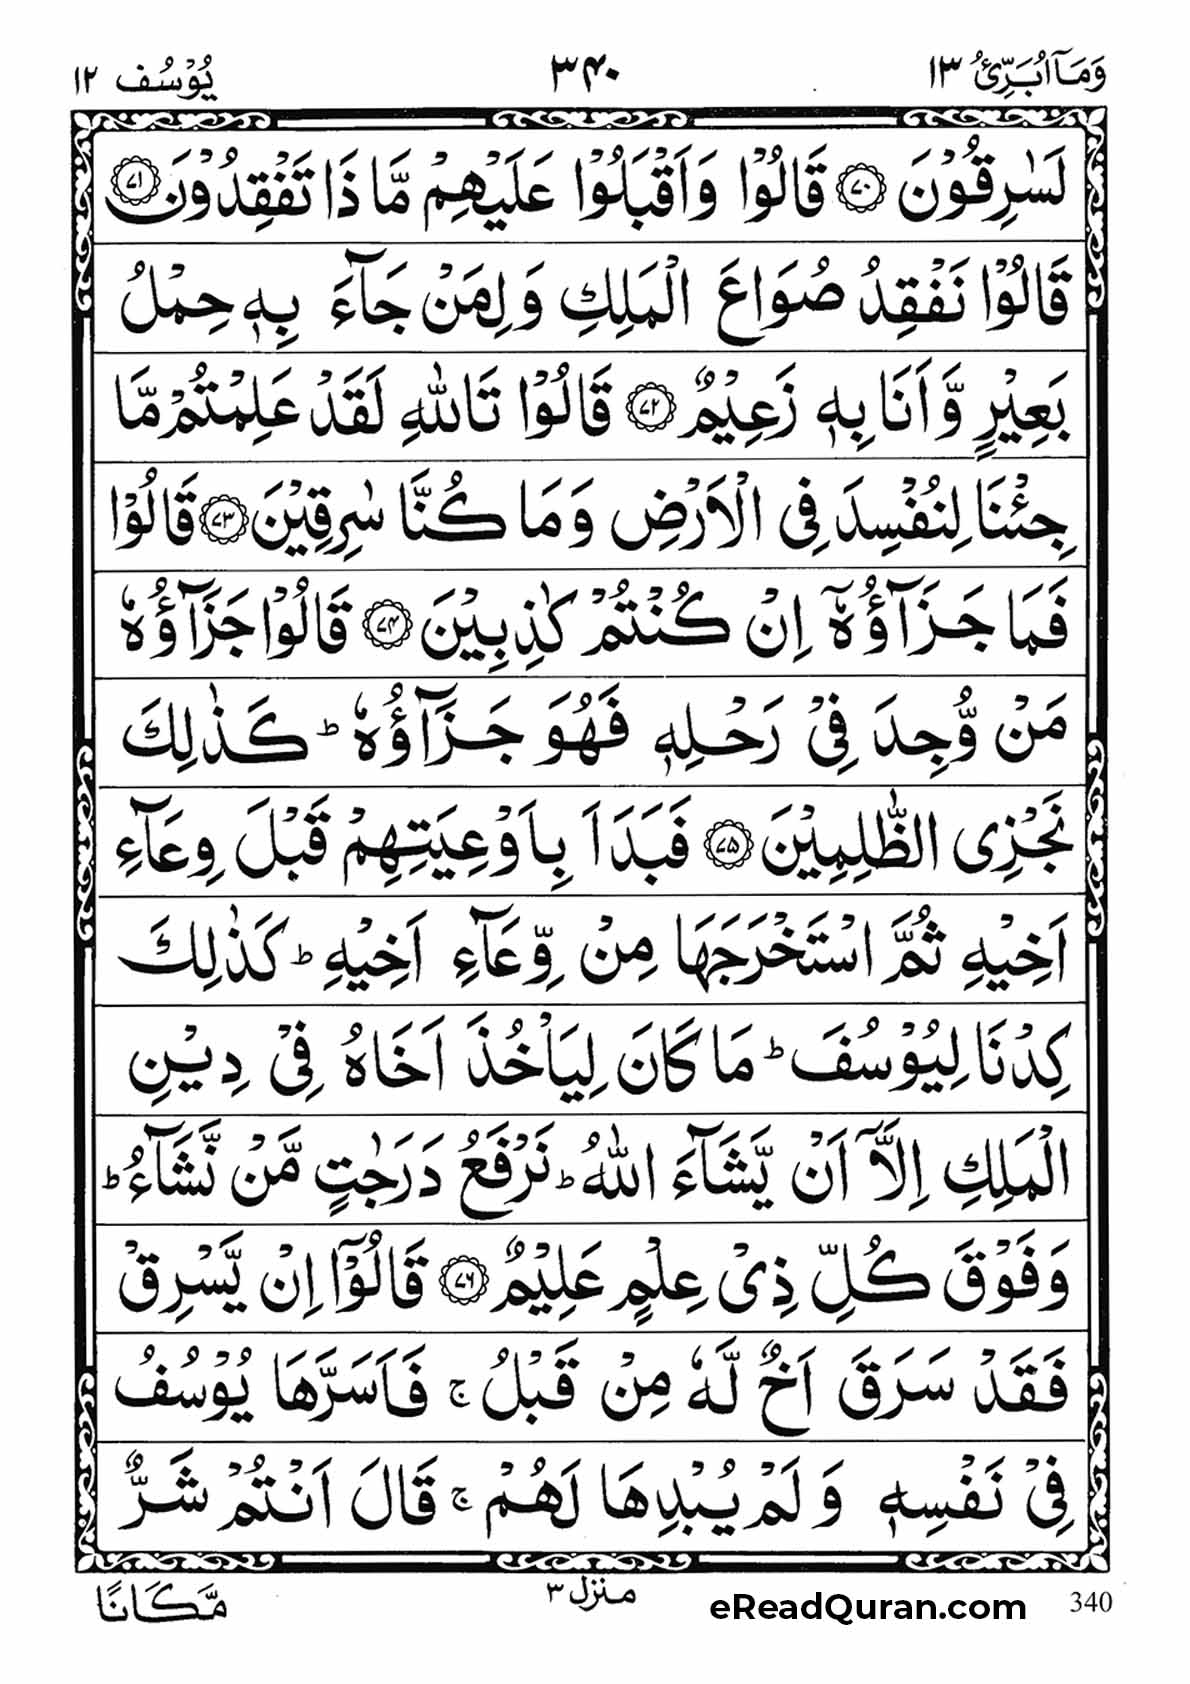 وَمَآ اُبَرِّئُ ١٣
٣۴٠
يُوْسُف ١٢
لَسٰرِقُوْنَ ﴿٧٠﴾ قَالُوْا وَاَقْبَلُوْا عَلَيْهِمْ مَّاذَا تَفْقِدُوْنَ ﴿٧١﴾
قَالُوْا نَفْقِدُ صُوَاعَ الْمَلِكِ وَلِمَنْ جَآءَ بِهٖ حِمْلُ
بَعِيْرٍ وَّاَنَا بِهٖ زَعِيْمٌ ﴿٧٢﴾ قَالُوْا تَاللّٰهِ لَقَدْ عَلِمْتُمْ مَّا
جِئْنَا لِنُفْسِدَ فِى الْاَرْضِ وَمَا كُنَّا سٰرِقِيْنَ ﴿٧٣﴾ قَالُوْا
فَمَا جَزَآؤُهٗٓ اِنْ كُنْتُمْ كٰذِبِيْنَ ﴿٧۴﴾ قَالُوْا جَزَآؤُهٗ
مَنْ وُّجِدَ فِىْ رَحْلِهٖ فَهُوَ جَزَآؤُهٗ ؕ كَذٰلِكَ
نَجْزِى الظّٰلِمِيْنَ ﴿٧۵﴾ فَبَدَاَ بِاَوْعِيَتِهِمْ قَبْلَ وِعَآءِ
اَخِيْهِ ثُمَّ اسْتَخْرَجَهَا مِنْ وِّعَآءِ اَخِيْهِ ؕ كَذٰلِكَ
كِدْنَا لِيُوْسُفَ ؕ مَا كَانَ لِيَاْخُذَ اَخَاهُ فِىْ دِيْنِ
الْمَلِكِ اِلَّآ اَنْ يَّشَآءَ اللّٰهُ ؕ نَرْفَعُ دَرَجٰتٍ مَّنْ نَّشَآءُ ؕ
وَفَوْقَ كُلِّ ذِىْ عِلْمٍ عَلِيْمٌ ﴿٧۶﴾ قَالُوْٓا اِنْ يَّسْرِقْ
فَقَدْ سَرَقَ اَخٌ لَّهٗ مِنْ قَبْلُ ۚ فَاَسَرَّهَا يُوْسُفُ
فِىْ نَفْسِهٖ وَلَمْ يُبْدِهَا لَهُمْ ۚ قَالَ اَنْتُمْ شَرٌّ
مَّكَانًا
منزل ٣
eReadQuran.com
340